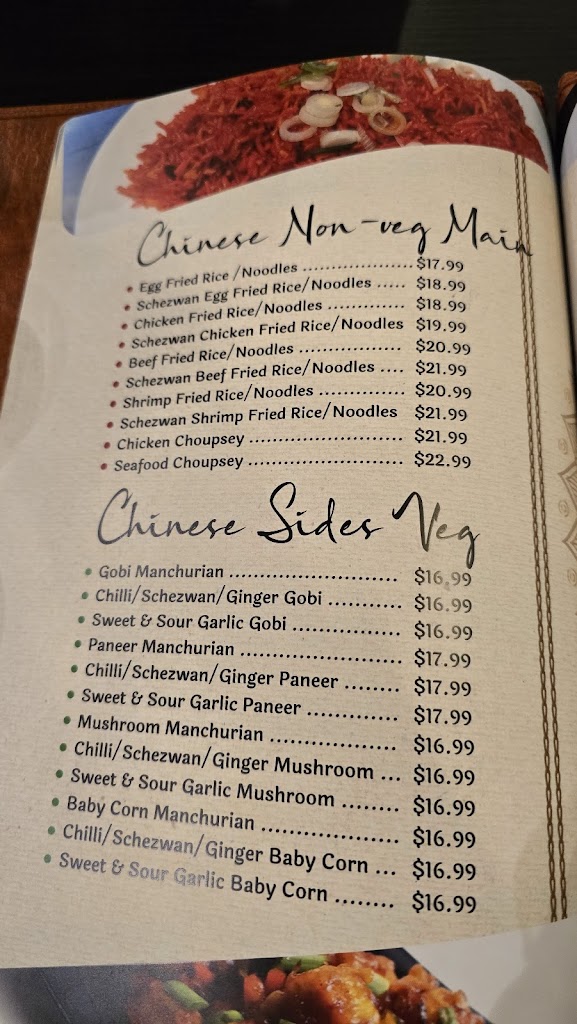 Chinese Non-veg Main
• Egg Fried Rice /Noodles .................. $17.99
• Schezwan Egg Fried Rice/Noodles ..... $18.99
• Chicken Fried Rice/Noodles ............. $18.99
• Schezwan Chicken Fried Rice/Noodles $19.99
• Beef Fried Rice/Noodles ................. $20.99
• Schezwan Beef Fried Rice/Noodles .... $21.99
• Shrimp Fried Rice/Noodles .............. $20.99
• Schezwan Shrimp Fried Rice/Noodles $21.99
• Chicken Choupsey ........................... $21.99
• Seafood Choupsey ........................... $22.99
Chinese Sides Veg
• Gobi Manchurian ............................. $16.99
• Chilli/Schezwan/Ginger Gobi ............ $16.99
• Sweet & Sour Garlic Gobi ................. $16.99
• Paneer Manchurian .......................... $17.99
• Chilli/Schezwan/Ginger Paneer ........ $17.99
• Sweet & Sour Garlic Paneer ............. $17.99
• Mushroom Manchurian .................... $16.99
• Chilli/Schezwan/Ginger Mushroom ... $16.99
• Sweet & Sour Garlic Mushroom ........ $16.99
• Baby Corn Manchurian ................... $16.99
• Chilli/Schezwan/Ginger Baby Corn ... $16.99
• Sweet & Sour Garlic Baby Corn ........ $16.99